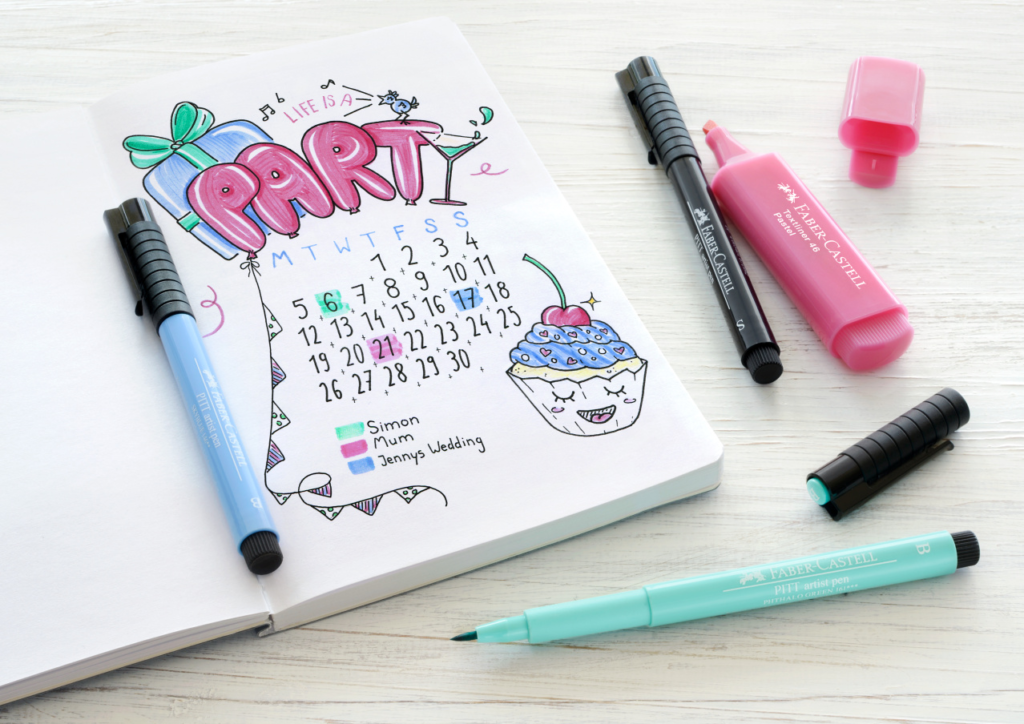 LIFE IS A
PARTY
M T W T F S S
1 2 3 4
5 6 7 8 9 10 11
12 13 14 15 16 17 18
19 20 21 22 23 24 25
26 27 28 29 30
Simon
Mum
Jennys Wedding
FABER-CASTELL
PITT artist pen
B
FABER-CASTELL
PITT
S
FABER-CASTELL
Textliner 46
Pastel
FABER-CASTELL
PITT artist pen
B